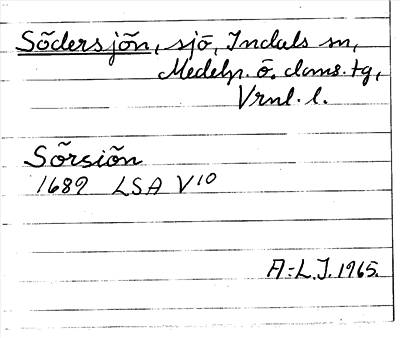 Södersjön, sjö, Indals sn,
Medelp. ö. doms. tg,
Vrnl. l.
Sörsiön
1689 LSA V10
A-L.J. 1965.